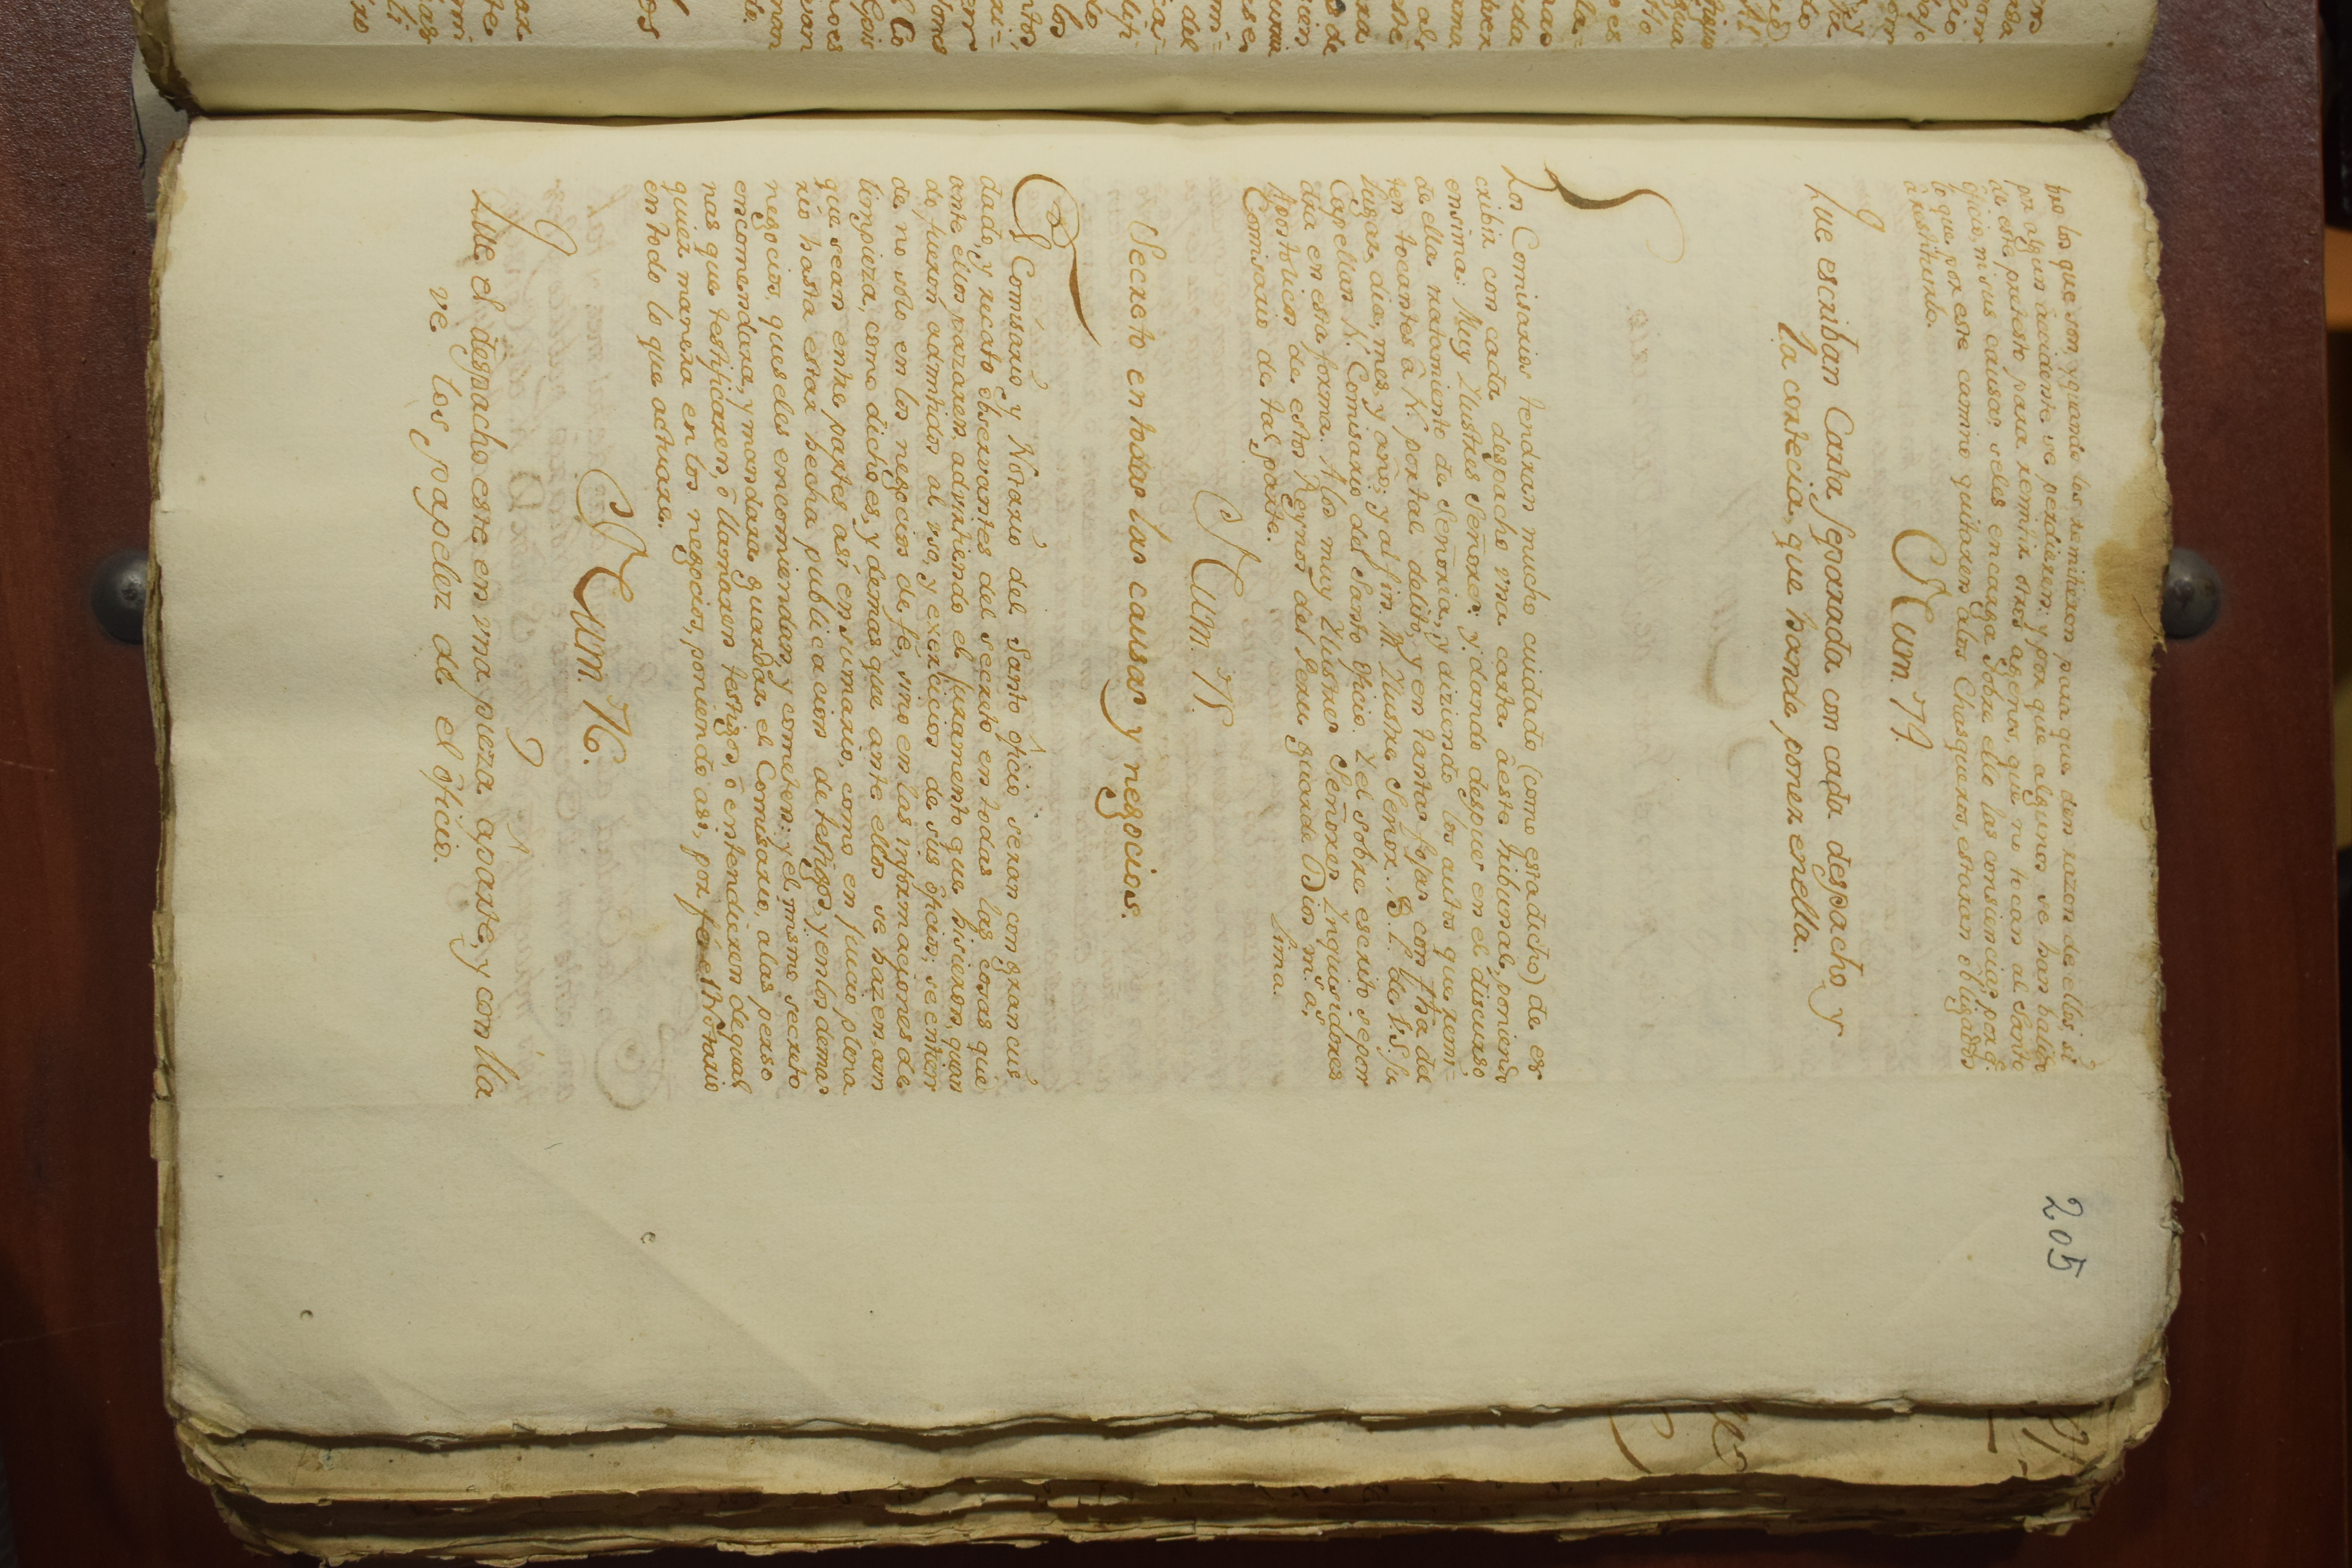 205
pro los que son, y quando los remitieren para que den razon de ellos, si
por algun accidente se perdieren; y por que algunos se han balido
de este pretesto para remitir otros agenos, que no tocan al Santo
Oficio, ni sus causas; seles encarga sobre ello las consiencias, por q.
lo que por este camino quitaren alos Chasqueros, estaran obligados
à restituirlo.
Num. 74.
Que escriban Carta separada con cada despacho, y
la contecia, que hande poner enella.
Los Comisarios tendran mucho cuidado (como estadicho) de es
cribir con cada despacho vna carta àeste tribunal, poniendo
ensima: Muy Ilustres Señores: y dando despues en el discurso
de ella tratamiento de Señoria, y diziendo los autos que remi=
ten tocantes à N. por tal delito, y en tantas fojas con fha del
lugar, dia, mes, y año; y al fin, M. Ilustre Señor. B. L. M. de V. S. Su
Capellan N. Comisario del Santo Oficio. Y el sobre escrito se pon
dra en esta forma. A los muy Ilustres Señores Ynquisidores
Apostolicos de estos Reynos del Peru guarde Dios m.s a.s
Comisario de tal parte. Lima.
Num. 75.
Secreto en todas las causas y negocios.
El Comisario y Notario del Santo Oficio seran con gran cui
dado, y recato observantes del secreto en todas las cosas que
ante ellos pazaren, advirtiendo el juramento que hisieron, quan
do fueron admitidos al vso, y exercicios de sus oficios; se entien
de no solo en los negocios de fé, sino en las informaciones de
limpieza, como dicho es, y demas que ante ellos se hazen, aun
que sean entre partes asi en sumario, como en juicio plena
rio hasta estar hecha publicacion de testigos, y en los demas
negocios, que seles encomiendan, y cometen; y el mismo secreto
encomendara, y mandara guardar el Comisario, alas perso
nas que testificaren, ò llamaren testigos, ò entendieren de qual
quier manera en los negocios, poniendo asi, por fé el Notario
en todo lo que actuare.
Num. 76.
Que el despacho este en vna pieza aparte, y con lla
ve los papeles de el oficio.